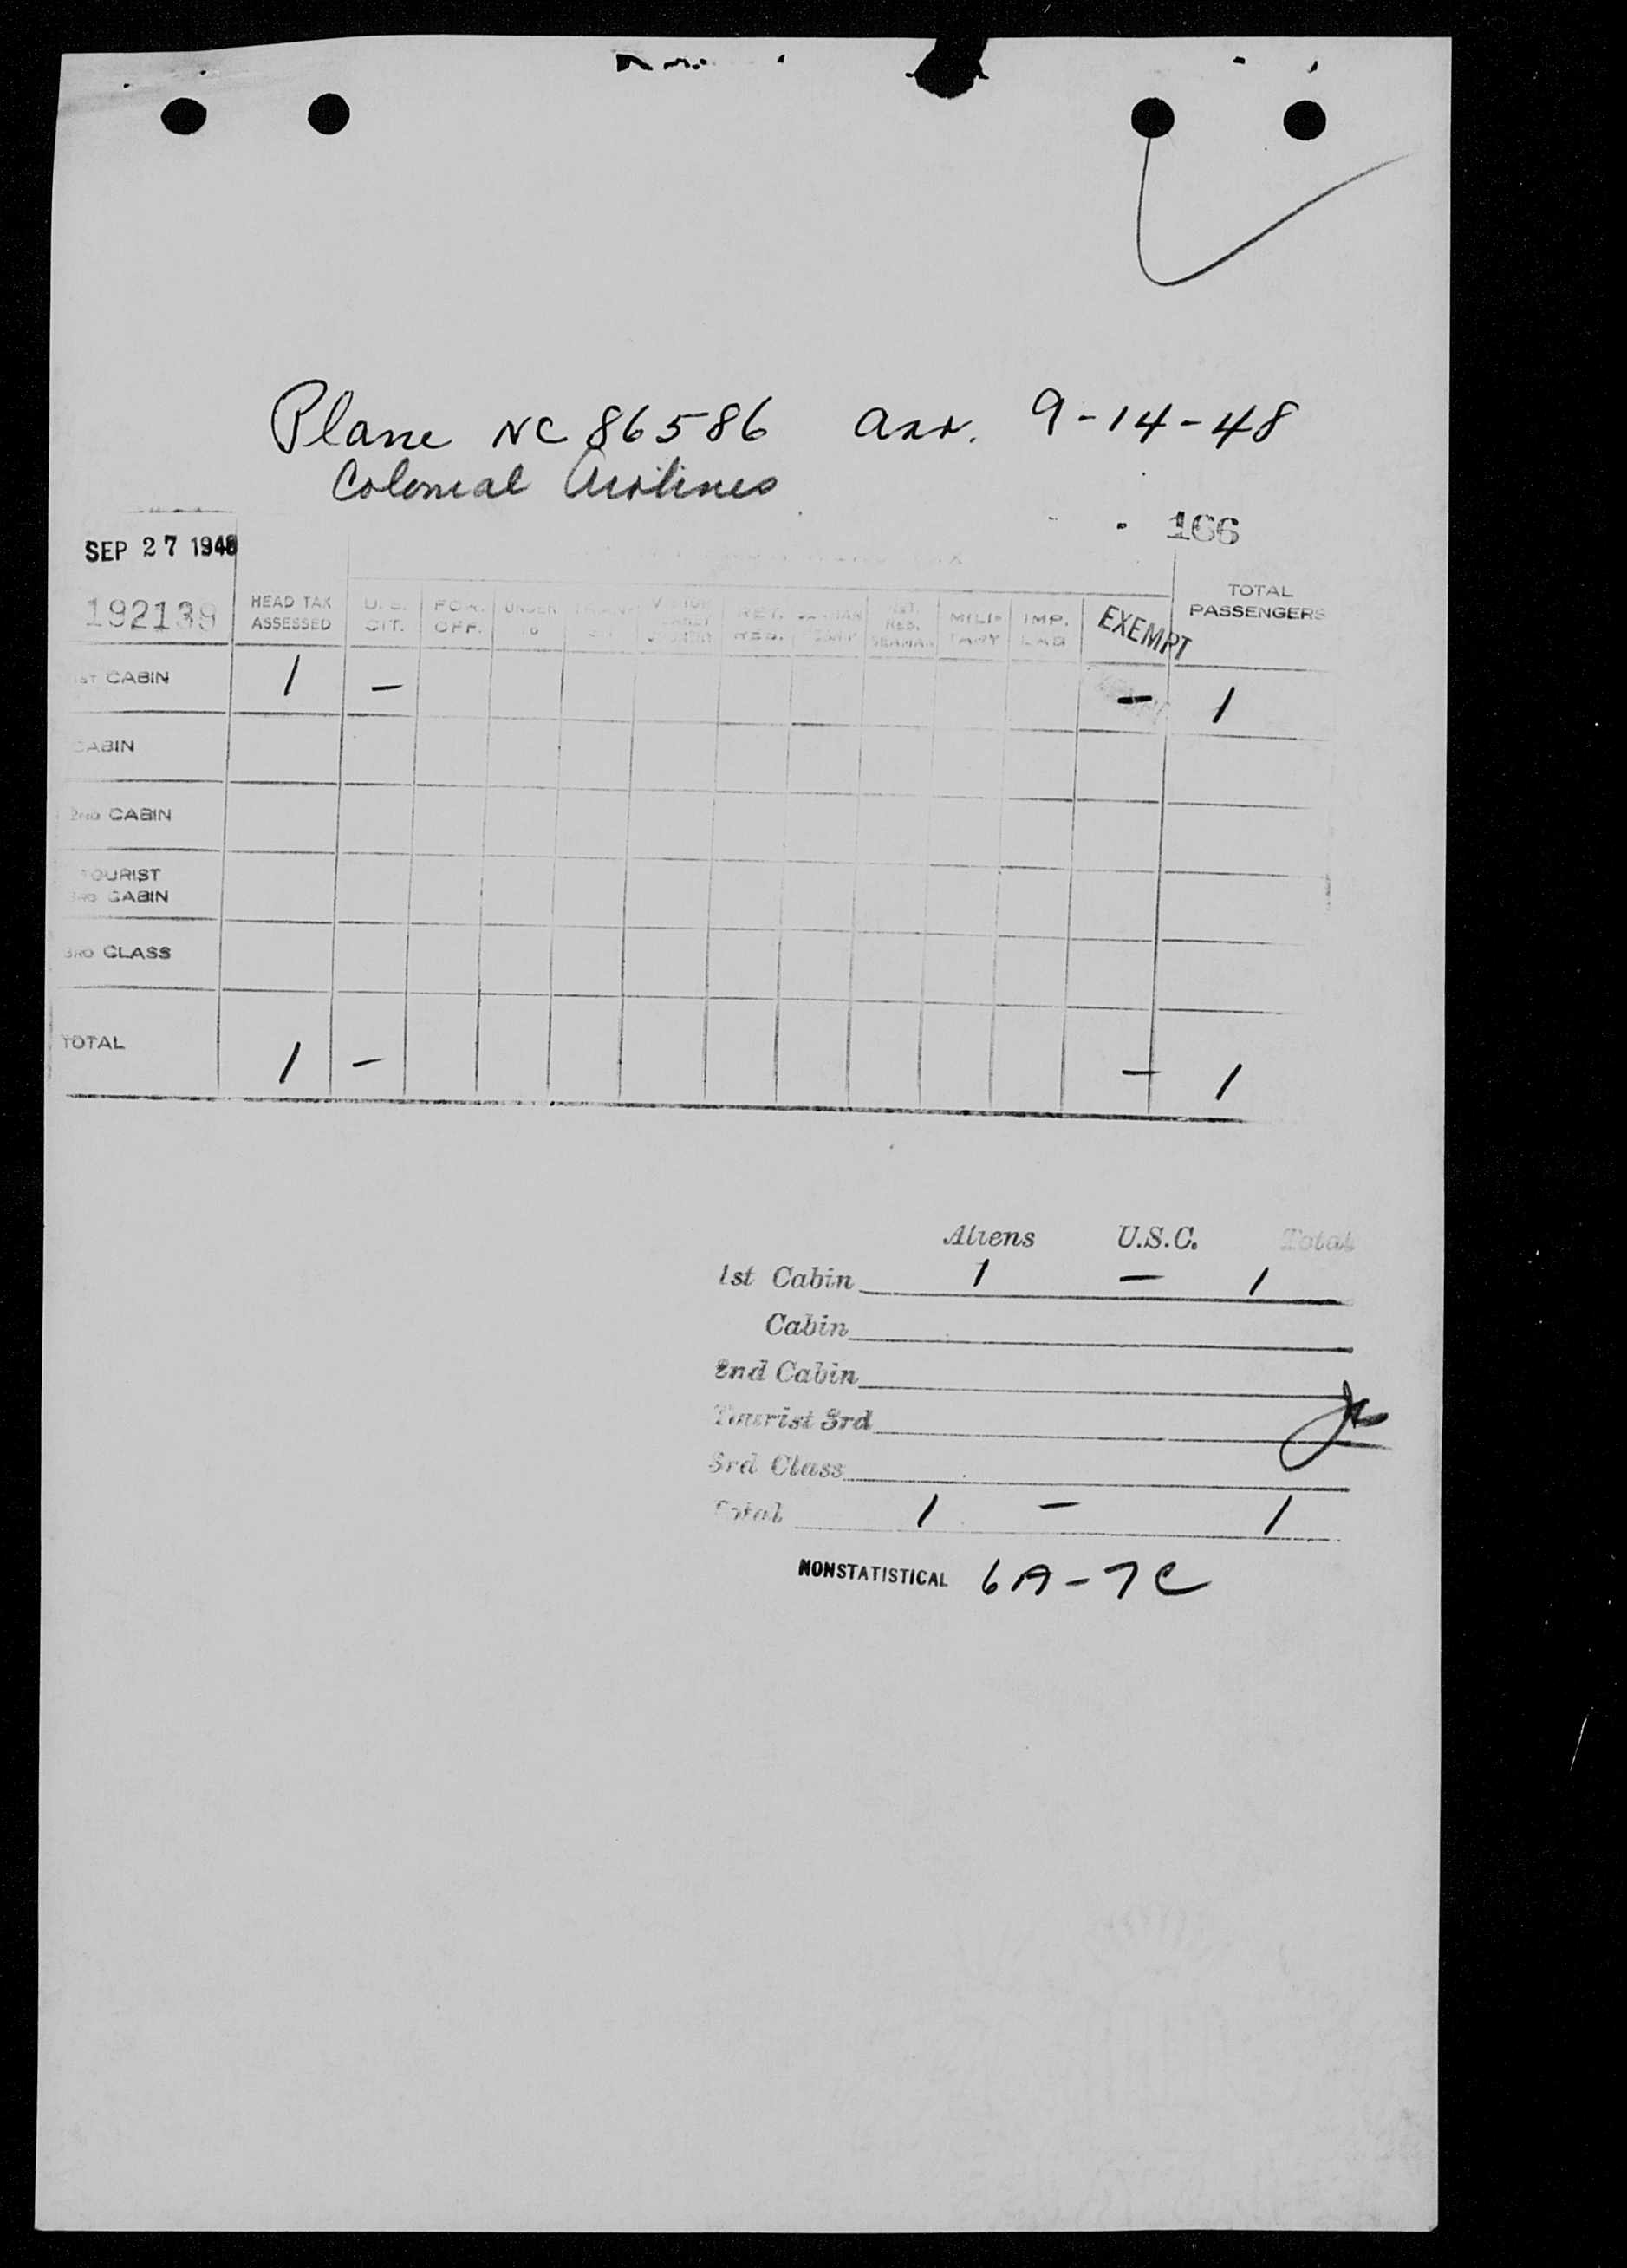 Plane NC 86586 arr. 9-14-48
Colonial Airlines
166
SEP 27 1948
192139
HEAD TAX ASSESSED U.S. CIT. FOR. OFF. UNDER 16 RET. RES. MILI- TARY IMP. LAB EXEMPT TOTAL PASSENGERS
1ST CABIN 1 - - 1
CABIN
2ND CABIN
TOURIST
3RD CABIN
3RD CLASS
TOTAL 1 - - 1
Aliens U.S.C. Total
1st Cabin 1 - 1
Cabin
2nd Cabin
Tourist 3rd
3rd Class
Total 1 - 1
NONSTATISTICAL 6A-7C